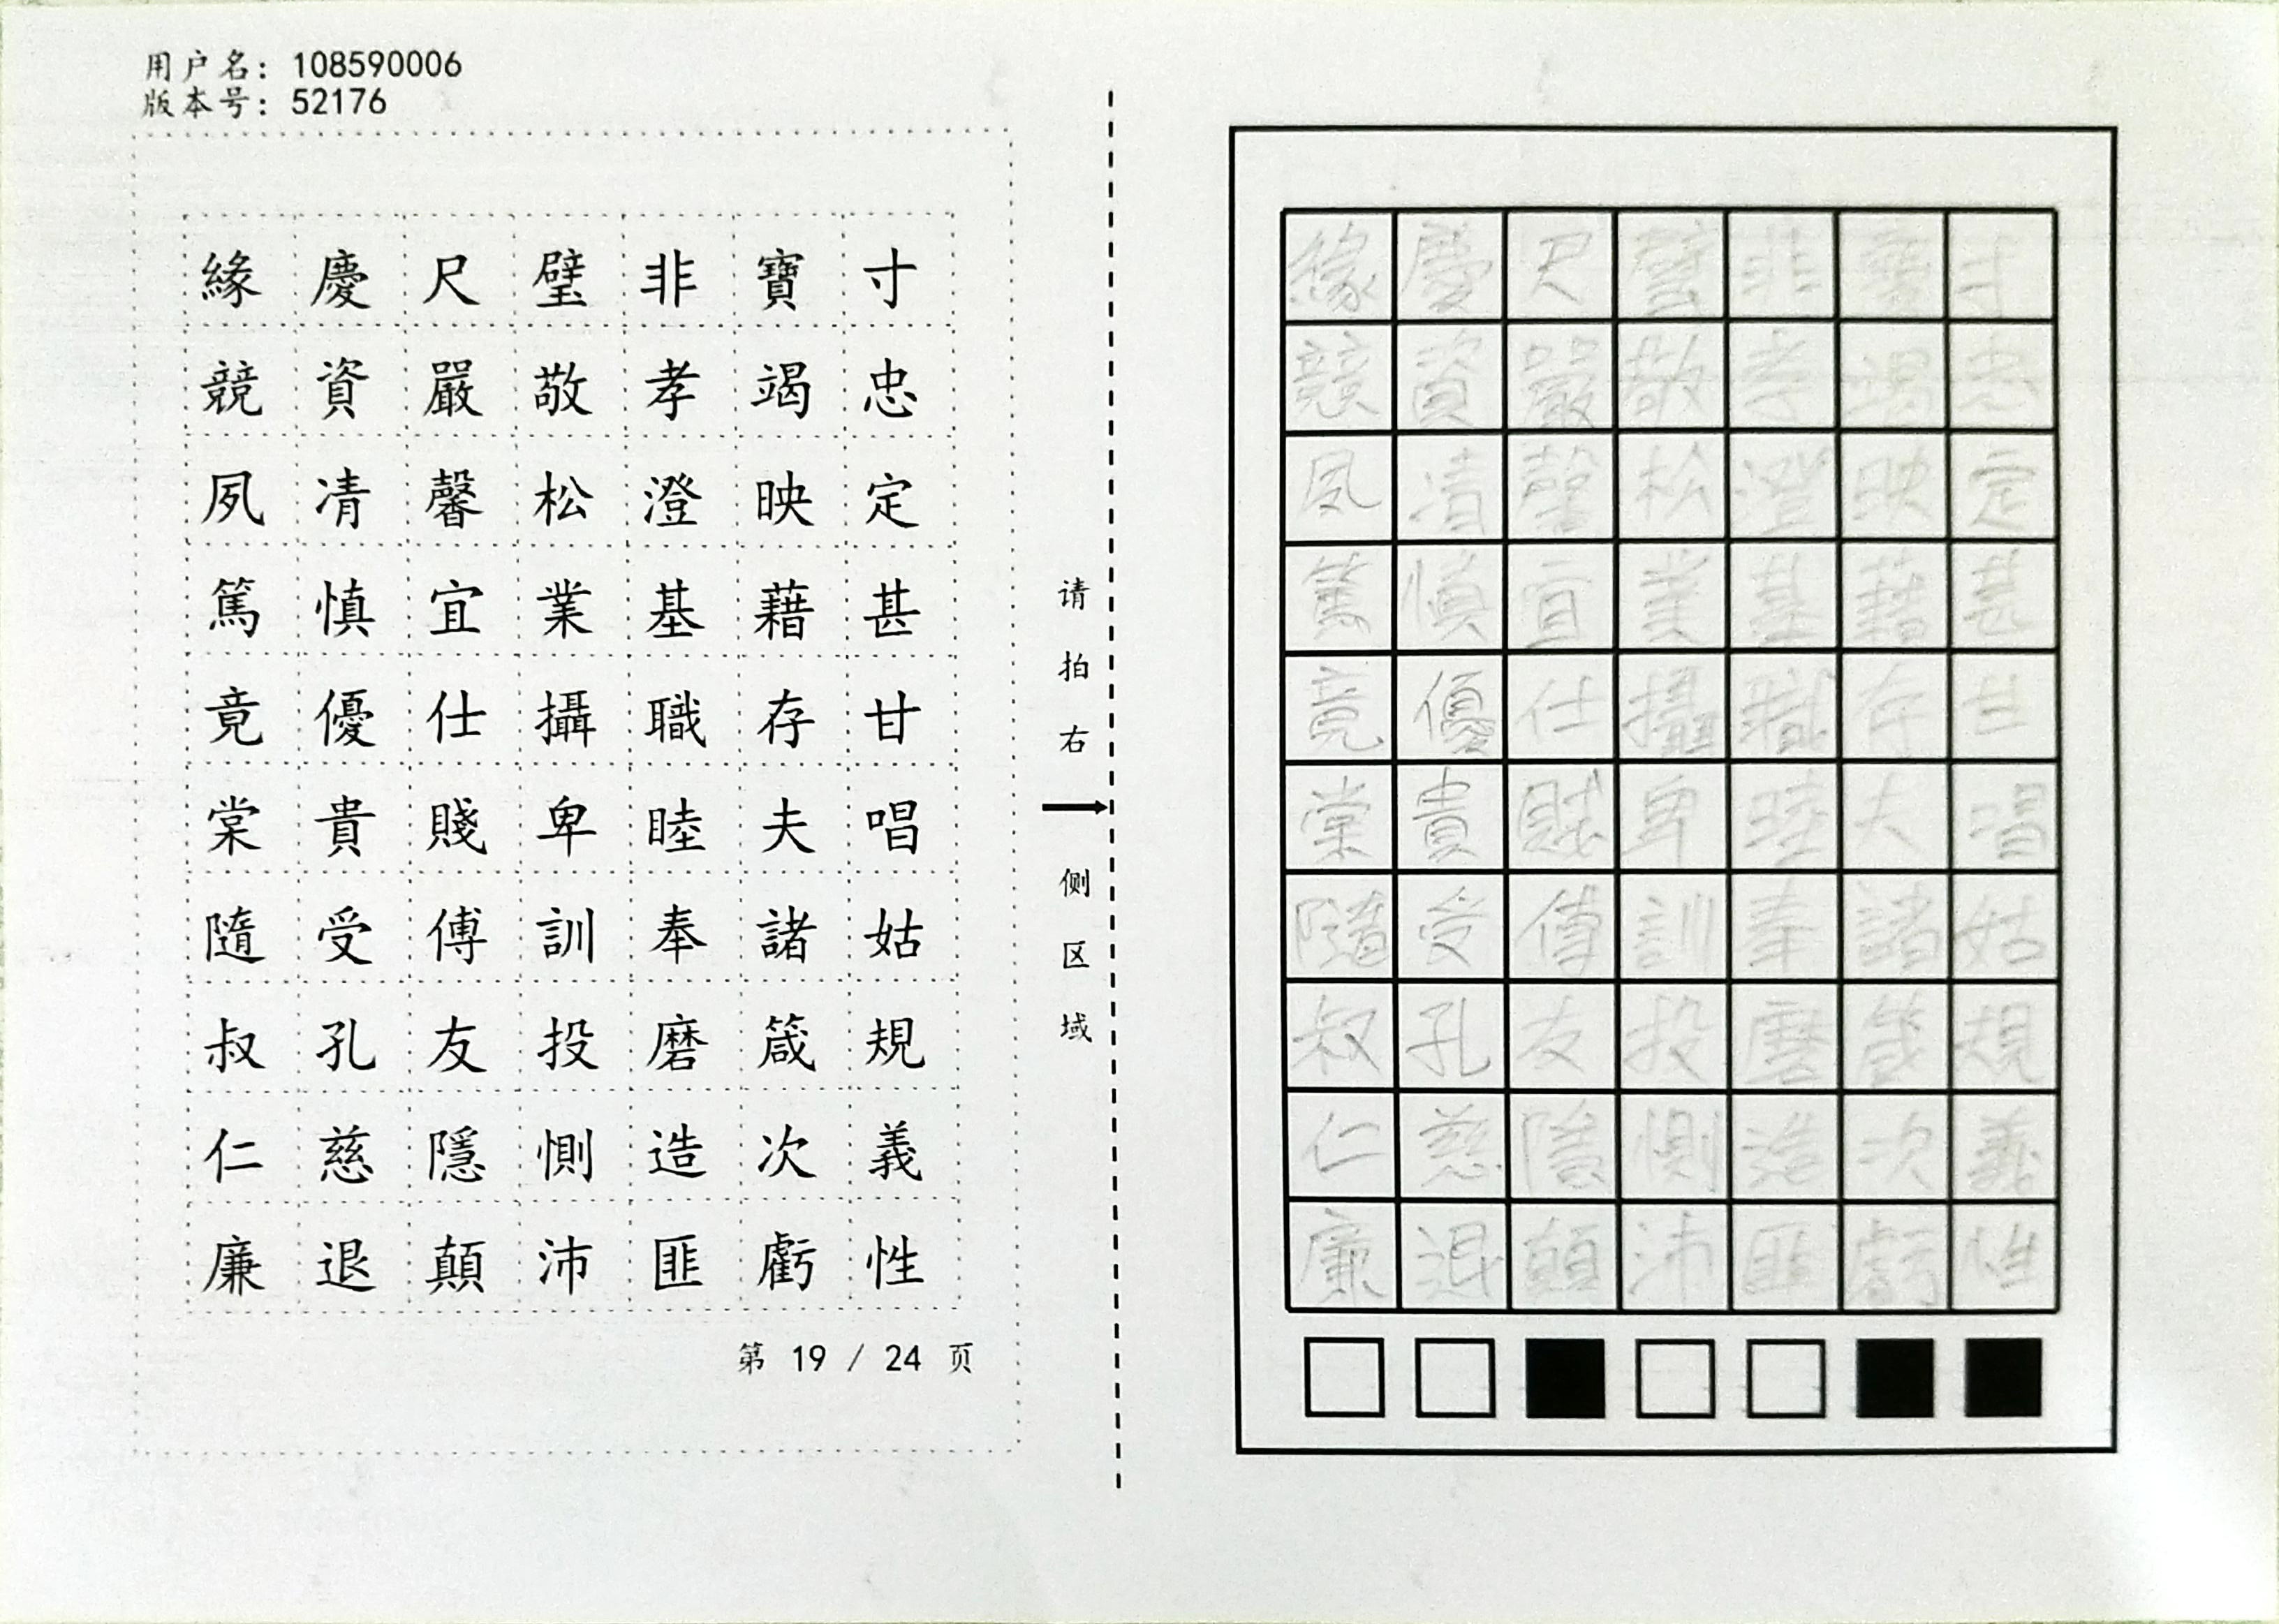 用户名: 108590006
版本号: 52176
緣 慶 尺 璧 非 寶 寸
競 資 嚴 敬 孝 竭 忠
夙 凊 馨 松 澄 映 定
篤 慎 宜 業 基 藉 甚
竟 優 仕 攝 職 存 甘
棠 貴 賤 卑 睦 夫 唱
隨 受 傅 訓 奉 諸 姑
叔 孔 友 投 磨 箴 規
仁 慈 隱 惻 造 次 義
廉 退 顛 沛 匪 虧 性
第 19 / 24 页
请拍右
侧区域
緣 慶 尺 璧 非 寶 寸
競 資 嚴 敬 孝 竭 忠
夙 凊 馨 松 澄 映 定
篤 慎 宜 業 基 藉 甚
竟 優 仕 攝 職 存 甘
棠 貴 賤 卑 睦 夫 唱
隨 受 傅 訓 奉 諸 姑
叔 孔 友 投 磨 箴 規
仁 慈 隱 惻 造 次 義
廉 退 顛 沛 匪 虧 性